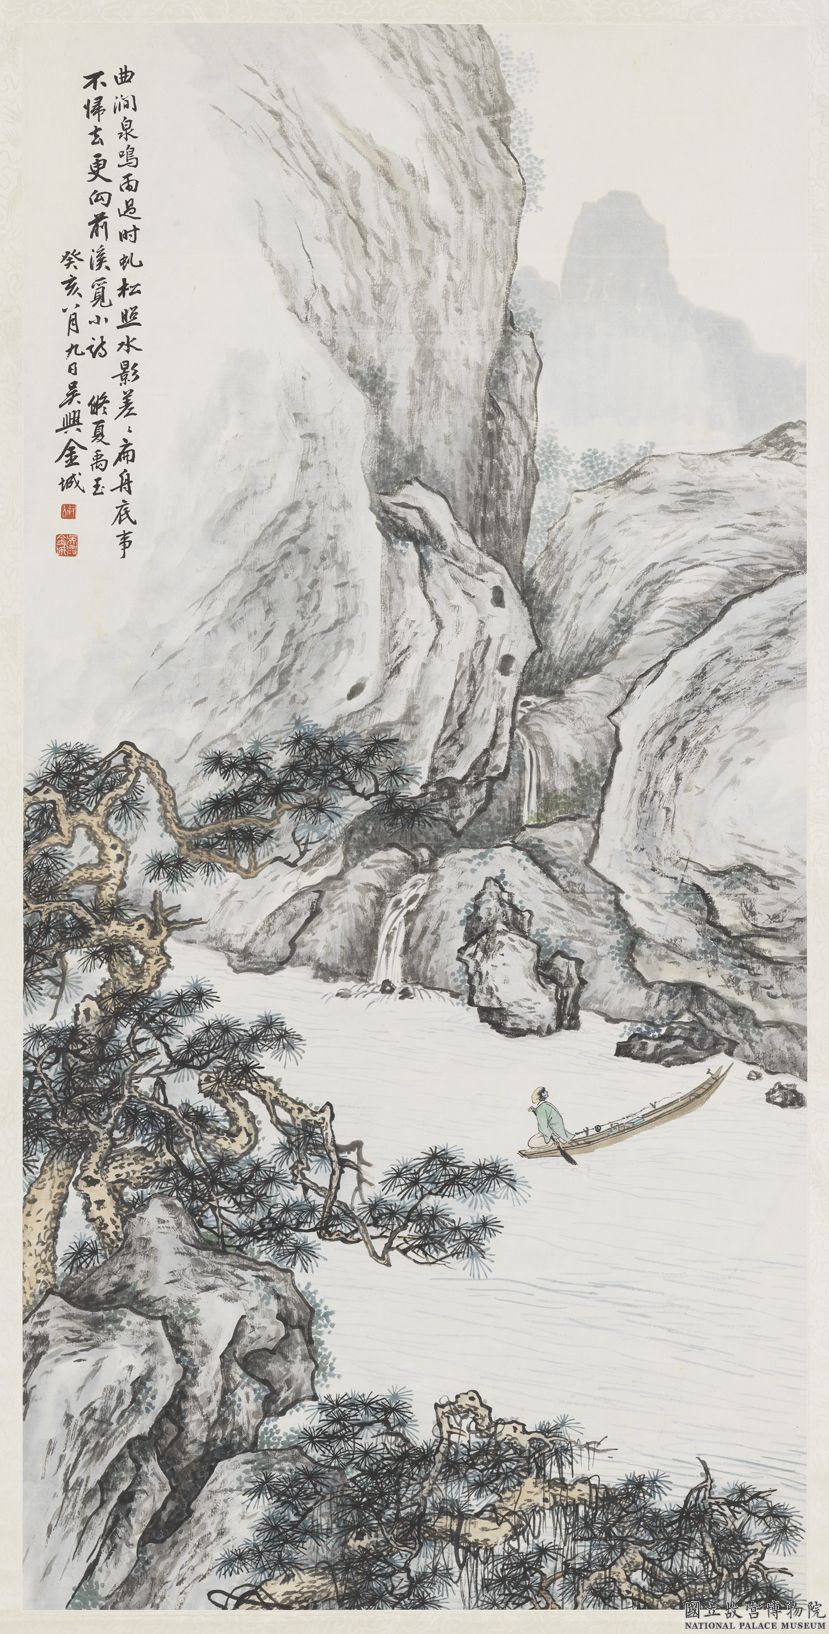 曲澗泉鳴雨過时虬松照水影差〻扁舟底事
不歸去更向前溪覓小詩 倣夏禹玉
癸亥八月九日吳興金城
國立故宮博物院
NATIONAL PALACE MUSEUM